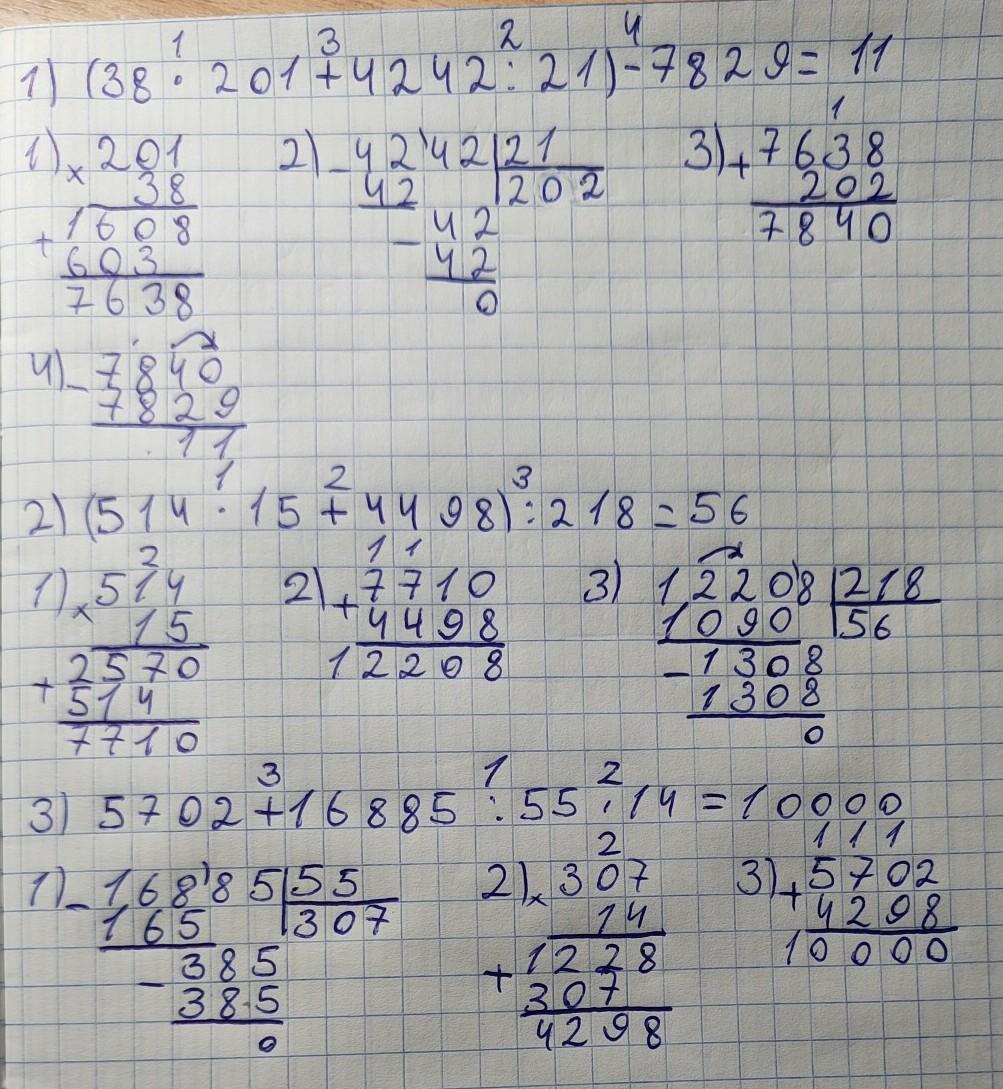 1 3 2 4
1) (38 · 201 + 4242 : 21) - 7829 = 11
1) × 201
38
+ 1608
603
7638
2) - 42'42 | 21
42 | 202
- 42
42
0
1
3) + 7638
202
7840
4) - 7840
7829
11
1 2 3
2) (514 · 15 + 4498) : 218 = 56
2
1) × 514
15
+ 2570
514
7710
1 1
2) + 7710
4498
12208
3) 12208 | 218
1090 | 56
- 1308
1308
0
3 1 2
3) 5702 + 16885 : 55 · 14 = 10000
1) - 168'85 | 55
165 | 307
- 385
385
0
2
2) × 307
14
+ 1228
307
4298
1 1 1
3) + 5702
4298
10000